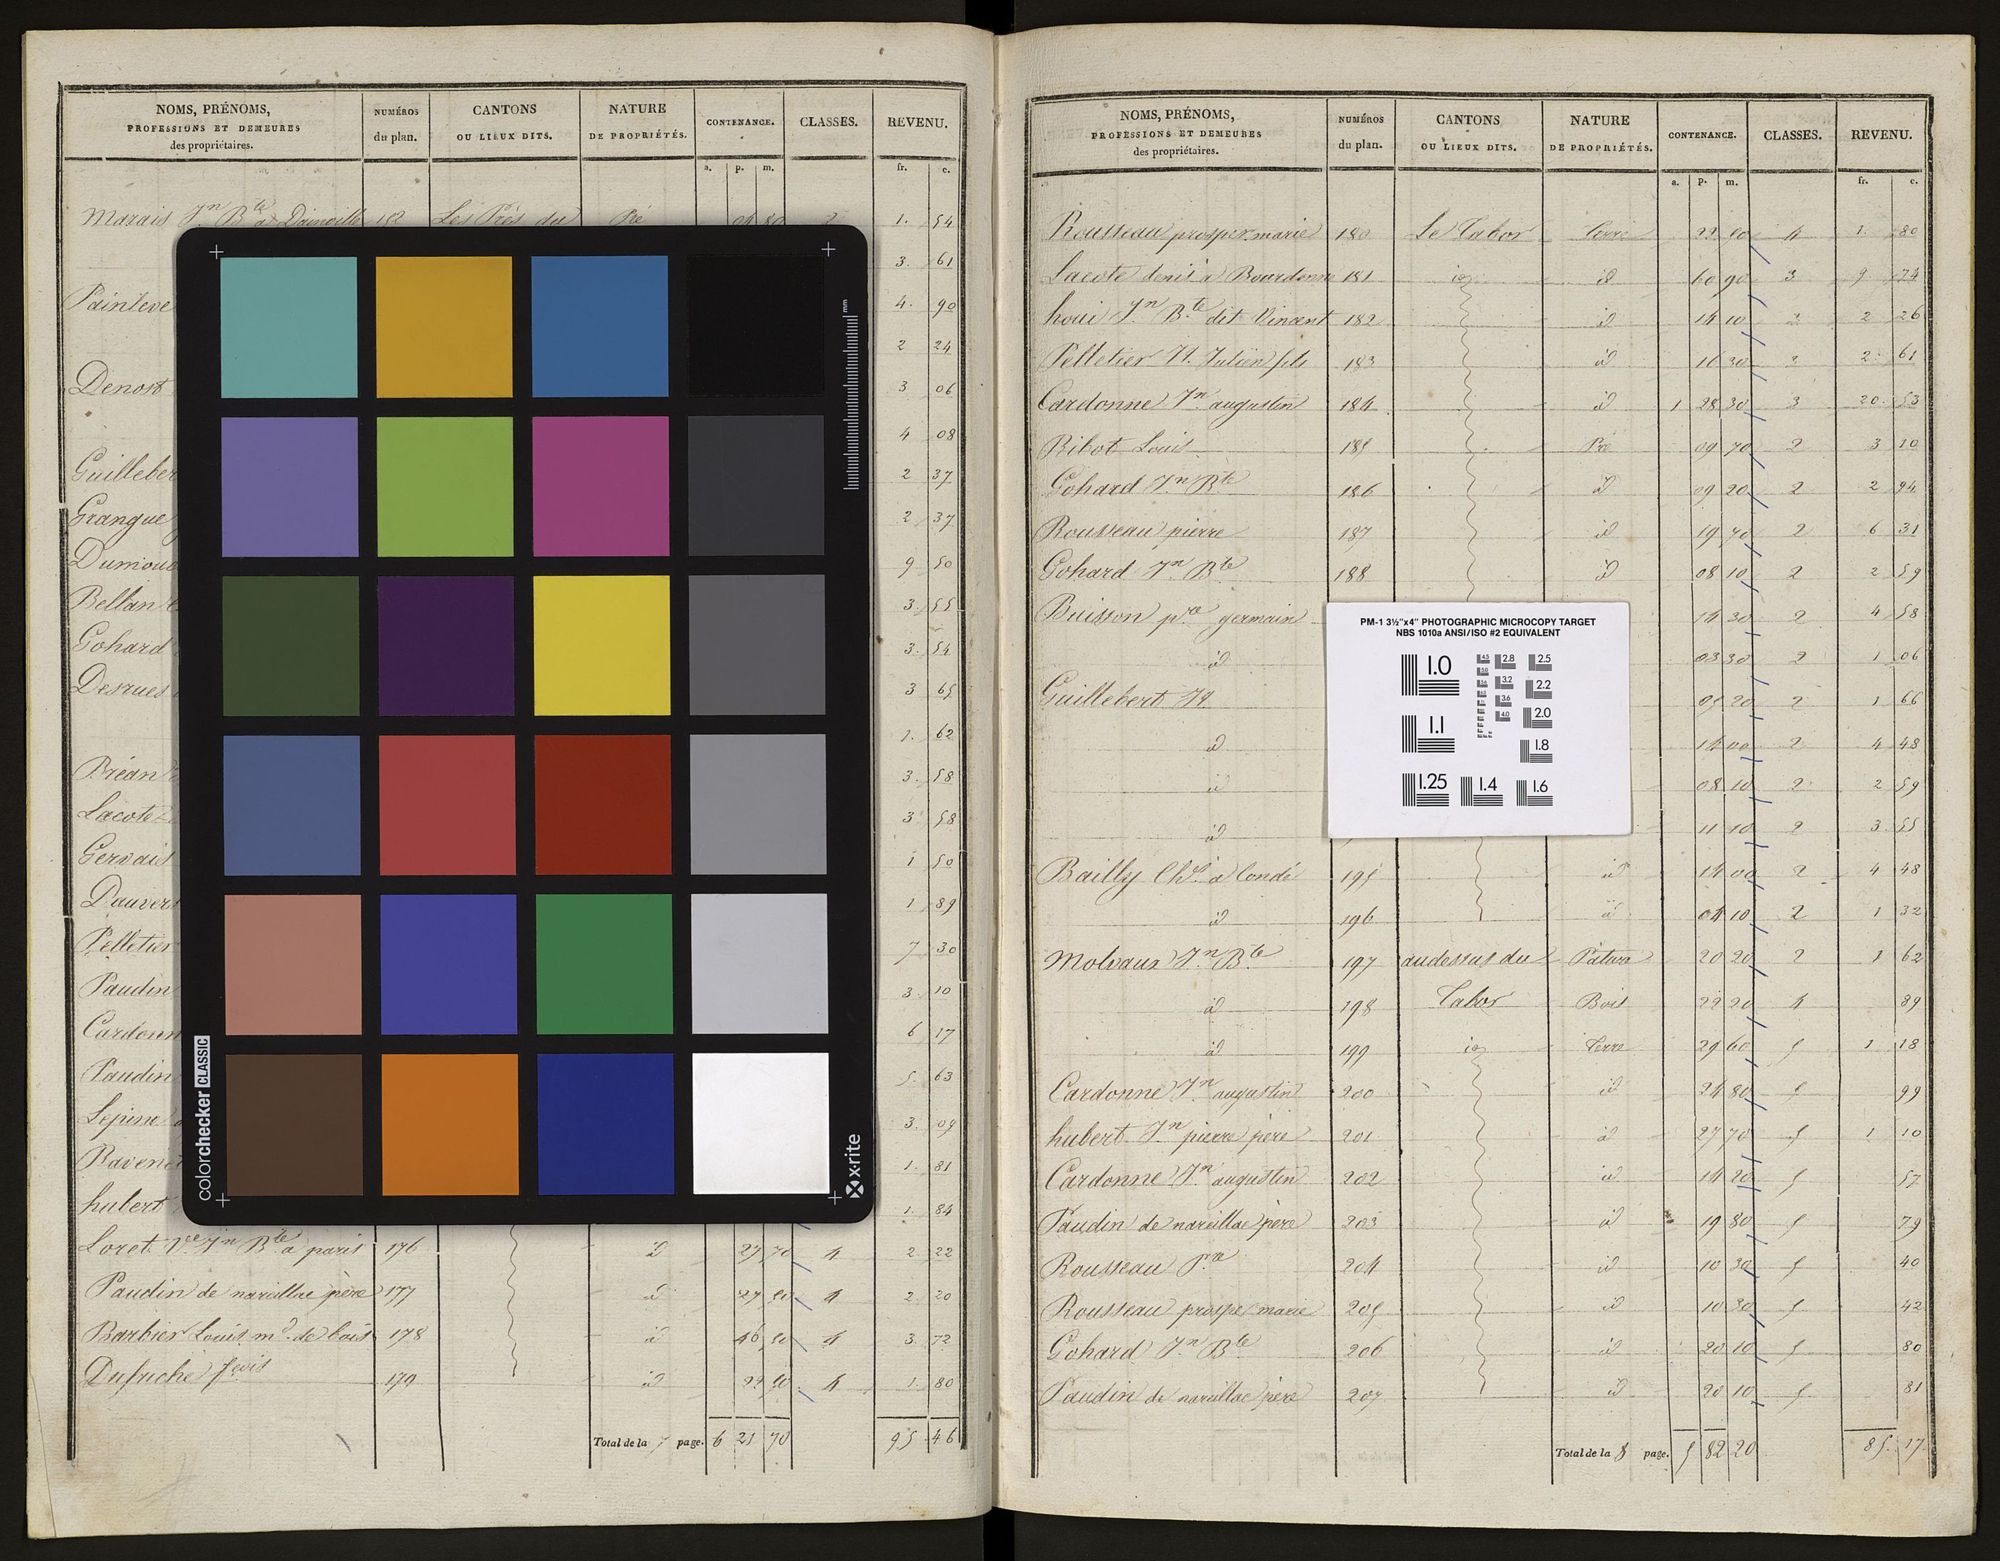 NOMS, PRÉNOMS,
PROFESSIONS ET DEMEURES
des propriétaires.
NUMÉROS
du plan.
CANTONS
OU LIEUX DITS.
NATURE
DE PROPRIÉTÉS.
CONTENANCE.
CLASSES.
REVENU.
a. p. m. fr. c.
Marais Jn Bte à Dainville 152 Les Prés du Pré 04 80 2 1. 54
3. 61
Painleve 4. 90
2 24
Denost 3 06
4 08
Guilleber 2 37
Grangue 2 37
Dumous 9 50
Bellan 3. 55
Gohard 3. 54
Desrues 3 65
1. 62
Bréan 3. 58
Lacote 3 58
Gervais 1 50
Dauver 1 89
Pelletier 7 30
Paudin 3. 10
Cardonn 6 17
Paudin 5. 63
Lepine 3. 09
Ravene 1. 81
hubert 1. 84
Loret Ve Jn Bte à paris 176 id 27 70 4 2 22
Paudin de narcillac père 177 id 27 50 4 2 20
Barbier Louis md. de bois 178 id 46 50 4 3. 72
Dufriche 179 id 22 50 4 1. 80
Total de la 7 page. 6 21 70 95 46
colorchecker CLASSIC
x·rite
mm
NOMS, PRÉNOMS,
PROFESSIONS ET DEMEURES
des propriétaires.
NUMÉROS
du plan.
CANTONS
OU LIEUX DITS.
NATURE
DE PROPRIÉTÉS.
CONTENANCE.
CLASSES.
REVENU.
a. p. m. fr. c.
Rousseau prosper marie 180 Le Tabor Terre 22 50 4 1. 80
Lacote denis à Bourdonné 181 id id 60 90 3 9 74
houi Jn Bte dit Vincent 182 id 14 10 3 2 26
Pelletier Jn Julien fils 183 id 16 30 3 2. 61
Cardonne Jn augustin 184 id 1 28 30 3 20. 53
Ribot Louis 185 Pré 09 70 2 3 10
Gohard Jn Bte 186 id 09 20 2 2 94
Rousseau pierre 187 id 19 70 2 6 31
Gohard Jn Bte 188 id 08 10 2 2 59
Buisson pre germain 14 30 2 4 58
id 03 30 2 1 06
Guillebert Jn 05 20 2 1 66
id 14 00 2 4 48
id 08 10 2 2 59
id 11 10 2 3 55
Bailly Chs à Condé 195 id 14 00 2 4 48
id 196 id 04 10 2 1 32
Molvaux Jn Bte 197 audessus du Pâture 20 20 2 1 62
id 198 Tabor Bois 22 20 4 89
id 199 id Terre 29 60 5 1 18
Cardonne Jn augustin 200 id 24 80 5 99
hubert Jn pierre père 201 id 27 70 5 1 10
Cardonne Jn augustin 202 id 14 20 5 57
Paudin de narcillac père 203 id 19 80 5 79
Rousseau Pre 204 id 10 30 5 40
Rousseau prosper marie 205 id 10 30 5 42
Gohard Jn Bte 206 id 20 10 5 80
Paudin de narcillac père 207 id 20 10 5 81
Total de la 8 page. 5 82 20 85. 17
PM-1 3½"x4" PHOTOGRAPHIC MICROCOPY TARGET
NBS 1010a ANSI/ISO #2 EQUIVALENT
1.0 4.5 2.8 2.5
5.0 3.2 2.2
5.6 3.6
1.1 4.0 2.0
1.8
1.25 1.4 1.6